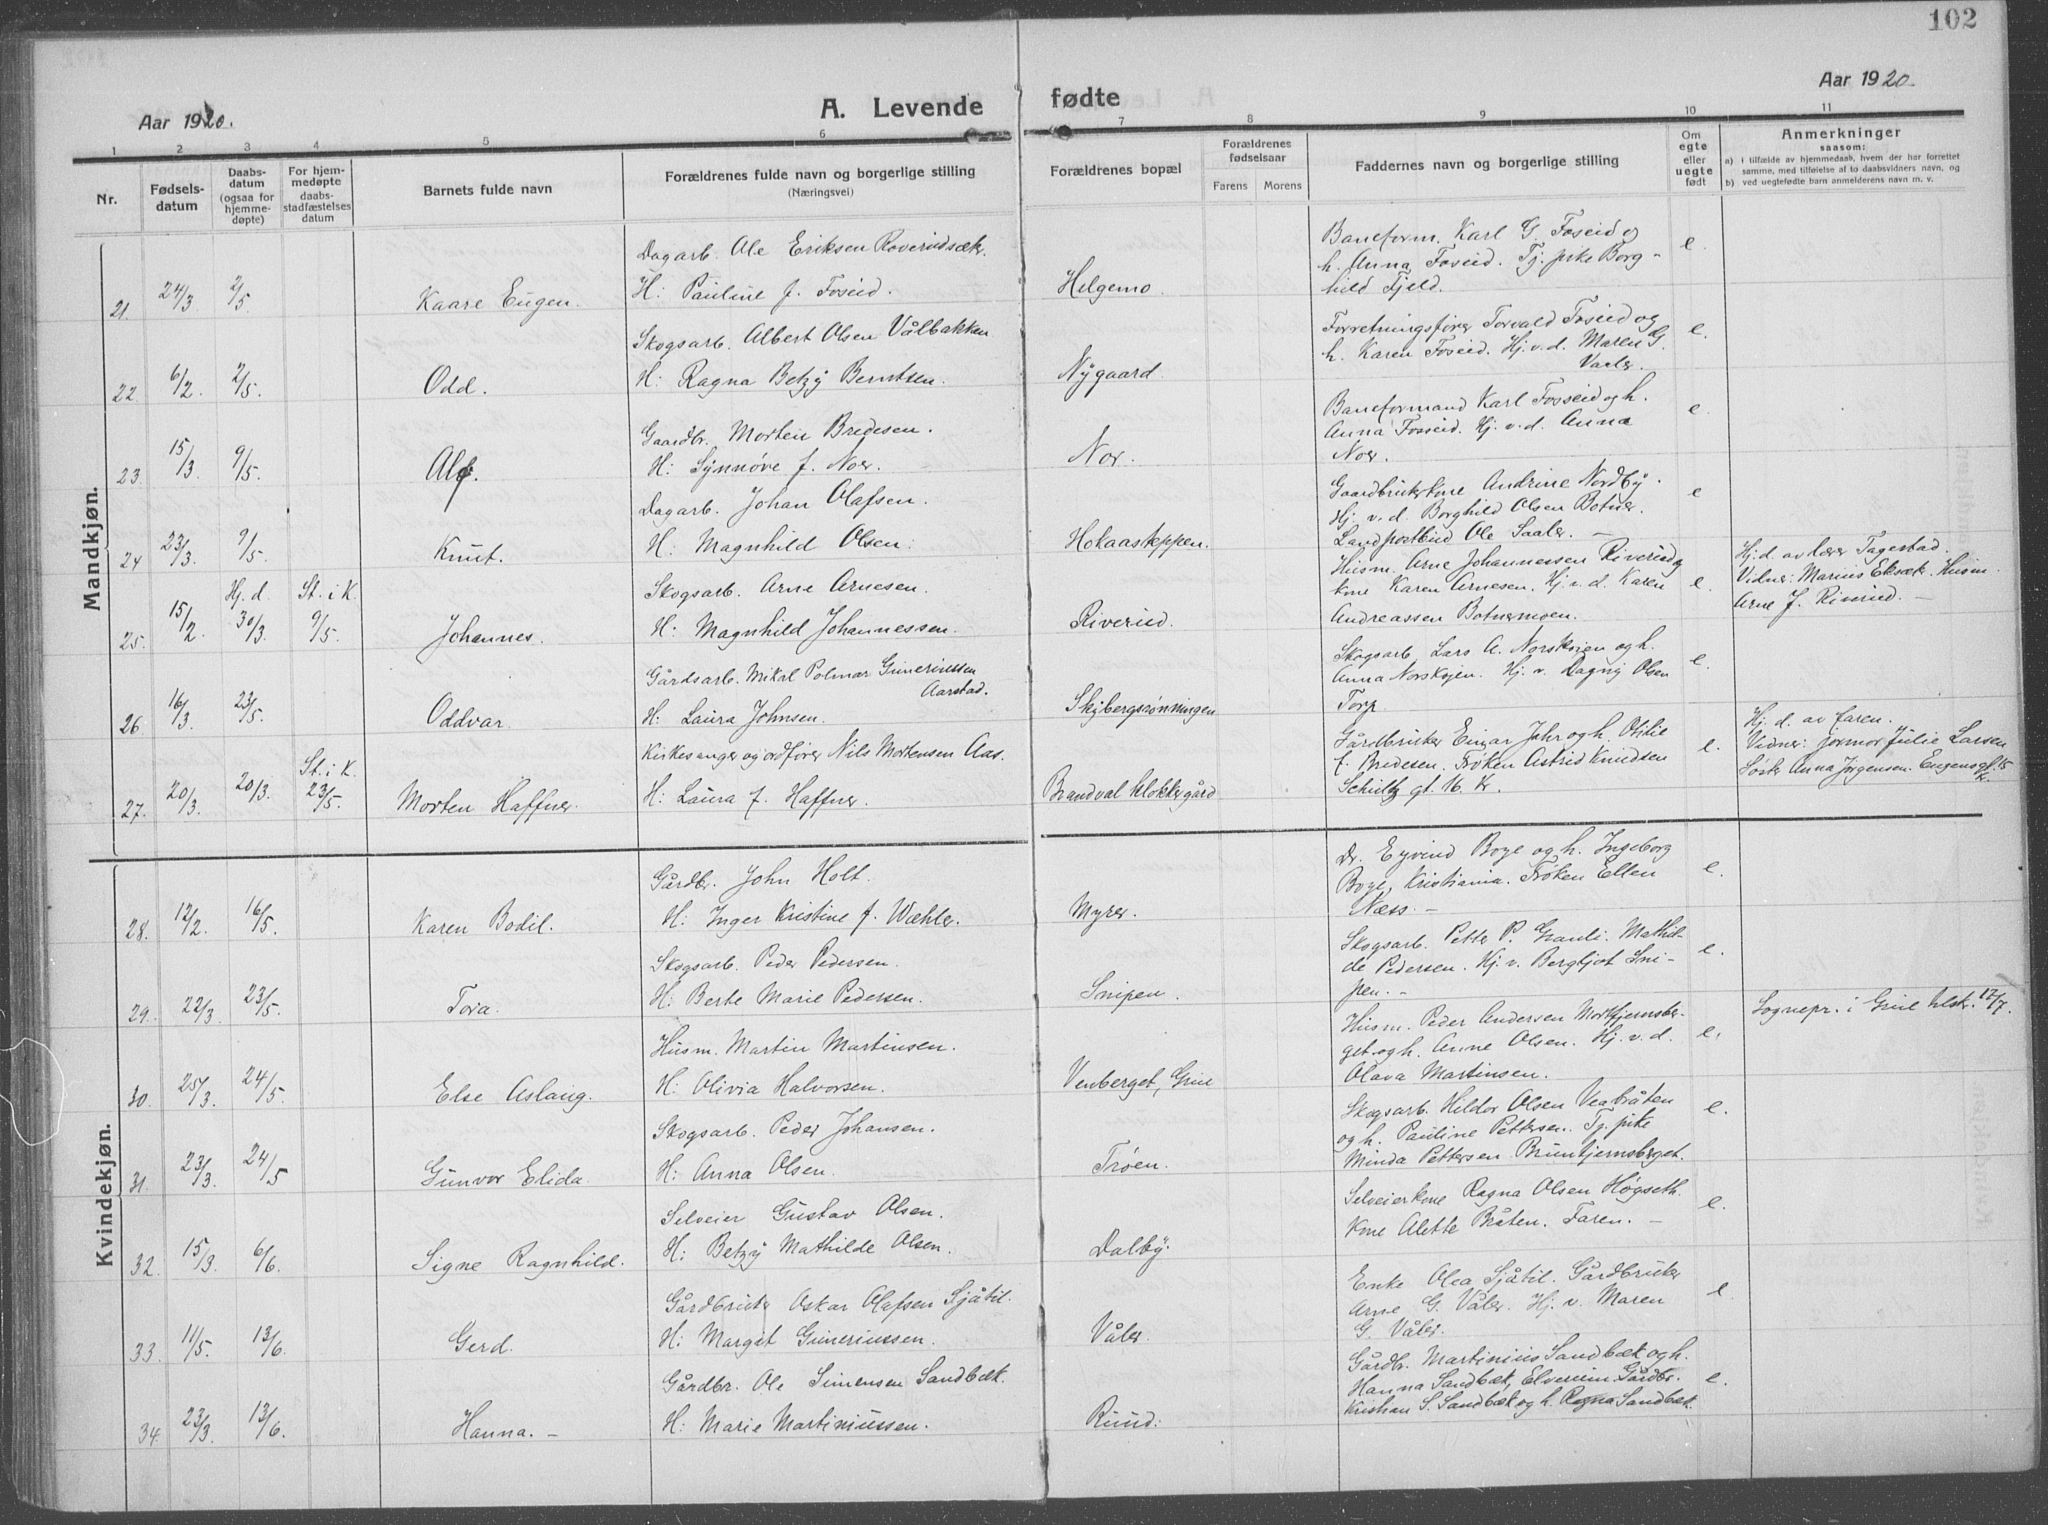 102
Aar 1920.
A. Levende fødte
Aar 1920.
1 2 3 4 5 6 7 8 9 10 11
Nr.
Fødselsdatum
Daabsdatum (ogsaa for hjemmedøpte)
For hjemmedøpte daabsstadfæstelses datum
Barnets fulde navn
Forældrenes fulde navn og borgerlige stilling
(Næringsvei)
Forældrenes bopæl
Forældrenes fødselsaar
Farens Morens
Faddernes navn og borgerlige stilling
Om egte eller uegte født
Anmerkninger
saasom:
a) i tilfælde av hjemmedaab, hvem der har forrettet samme, med tilføielse af to daabsvidners navn, og
b) ved uegtefødte barn anmelderens navn m. v.
Mandkjøn.
21. 24/3 2/5. Kaare Eugen.
Dagarb. Ole Eriksen Roverudsæk.
H: Pauline f. Foseid.
Helgemo.
Baneform. Karl G. Foseid og
h. Anna Foseid. Tj. pike Borg-
hild Fjeld.
e.
22. 6/2. 2/5. Odd.
Skogsarb. Albert Olsen Vålbakken
H: Ragna Betzy Berntsen.
Nygaard.
Forretningsfører Torvald Foseid og
h. Karen Foseid. Hj. v. d. Maren G.
Vaaler.
e.
23. 15/3. 9/5. Alf.
Gaardbr. Morten Bredesen.
H: Synnøve f. Noer.
Nor.
Baneformand Karl Fosseid og h.
Anna Fosseid. Hj. v. d. Anna
Noer.
e.
24 23/3. 9/5. Knut.
Dagarb. Johan Olafsen.
H: Magnhild Olsen.
Hokaasteppen.
Gaardbrukerkone Andrine Nordby.
Hj. v. d. Borghild Olsen Botner.
Landpostbud Ole Saaler. -
e
25. 15/2. Hj. d. 30/3. St. i K. 9/5. Johannes.
Skogsarb. Arne Arnesen.
H: Magnhild Johannessen.
Riverud.
Husm. Arne Johannessen Riverud og
kone Karen Arnesen. Hj. v. d. Karen
Andreassen Botnermoen.
e.
Hj. d. av lærer Tagestad.
Vidner: Marius Eksæt. Husm.
Arne J. Riverud. -
26 16/3. 23/5. Oddvar.
Gårdsarb. Mikal Polmar Gunerussen
Aarstad.
H: Laura Johnsen.
Skybergsrønningen
Skogsarb. Lars A. Norskojen og h.
Anna Norskojen. Hj. v. Dagny Olsen
Torp
e.
27. 20/3. 20/3. St. i K. 23/5. Morten Haffner.
Kirkesanger og ordfører Nils Mortensen Aas.
H: Laura f. Haffner.
Brandval klokkergård
Gårdbruker Einar Jahr og h. Otilie
f. Bredesen. Frøken Astrid Knudsen
Schultz gt. 16. Kr.
e.
Hj. d. av faren.
Vidner: jormor Julie Larsen
Søster Anna Jørgensen. Eugensgt. 15
Kr.
Kvindekjøn.
28. 12/2. 16/5. Karen Bodil.
Gårdbr. John Holt.
H: Inger Kristine f. Wæhler.
Myrer.
Dr. Eyvind Boye og h. Ingeborg
Boye, Kristiania. Frøken Ellen
Næss. -
e.
29. 22/3. 23/5. Tora.
Skogsarb. Peder Pedersen.
H: Berte Marie Pedersen.
Snipen.
Skogsarb. Petter P. Grauli. Mathil-
de Pedersen. Hj. v. Bergljot Sni-
pen. -
e.
30. 25/3. 24/5. Else Aslaug.
Husm. Martin Martinsen.
H: Olivia Halvorsen.
Venberget, Grue
Husm. Peder Andersen Morttjernsber-
get og h. Anne Olsen. Hj. v. d.
Olava Martinsen.
e.
Sognepr. i Grue tilskr. 12/7.
31. 23/3. 24/5 Gunvor Elida.
Skogsarb. Peder Johansen.
H: Anna Olsen.
Trøen.
Skogsarb. Hildor Olsen Veabråten
og h. Pauline Pettersen. Tj. pike
Minda Pettersen Bruntjernsberget.
e.
32. 15/3. 6/6. Signe Ragnhild.
Selveier Gustav Olsen.
H: Betzy Mathilde Olsen.
Dalby.
Selveierkone Ragna Olsen Høgseth.
Kone Alette Bråten. Faren. -
e.
33. 11/5. 13/6. Gerd.
Gårdbruker Oskar Olafsen Sjåtil.
H: Margit Gunerussen.
Våler.
Enke Olea Sjåtil. Gårdbruker
Arne G. Våler. Hj. v. Maren
G. Våler.
e.
34. 23/3. 13/6. Hanna. -
Gårdbr. Ole Simensen Sandbæk.
H: Marie Martiniussen.
Ruud.
Gårdbr. Martinius Sandbæk og h.
Hanna Sandbæk, Elverum. Gårdbr.
Kristian S. Sandbæk og h. Ragna Sandbæk
e.